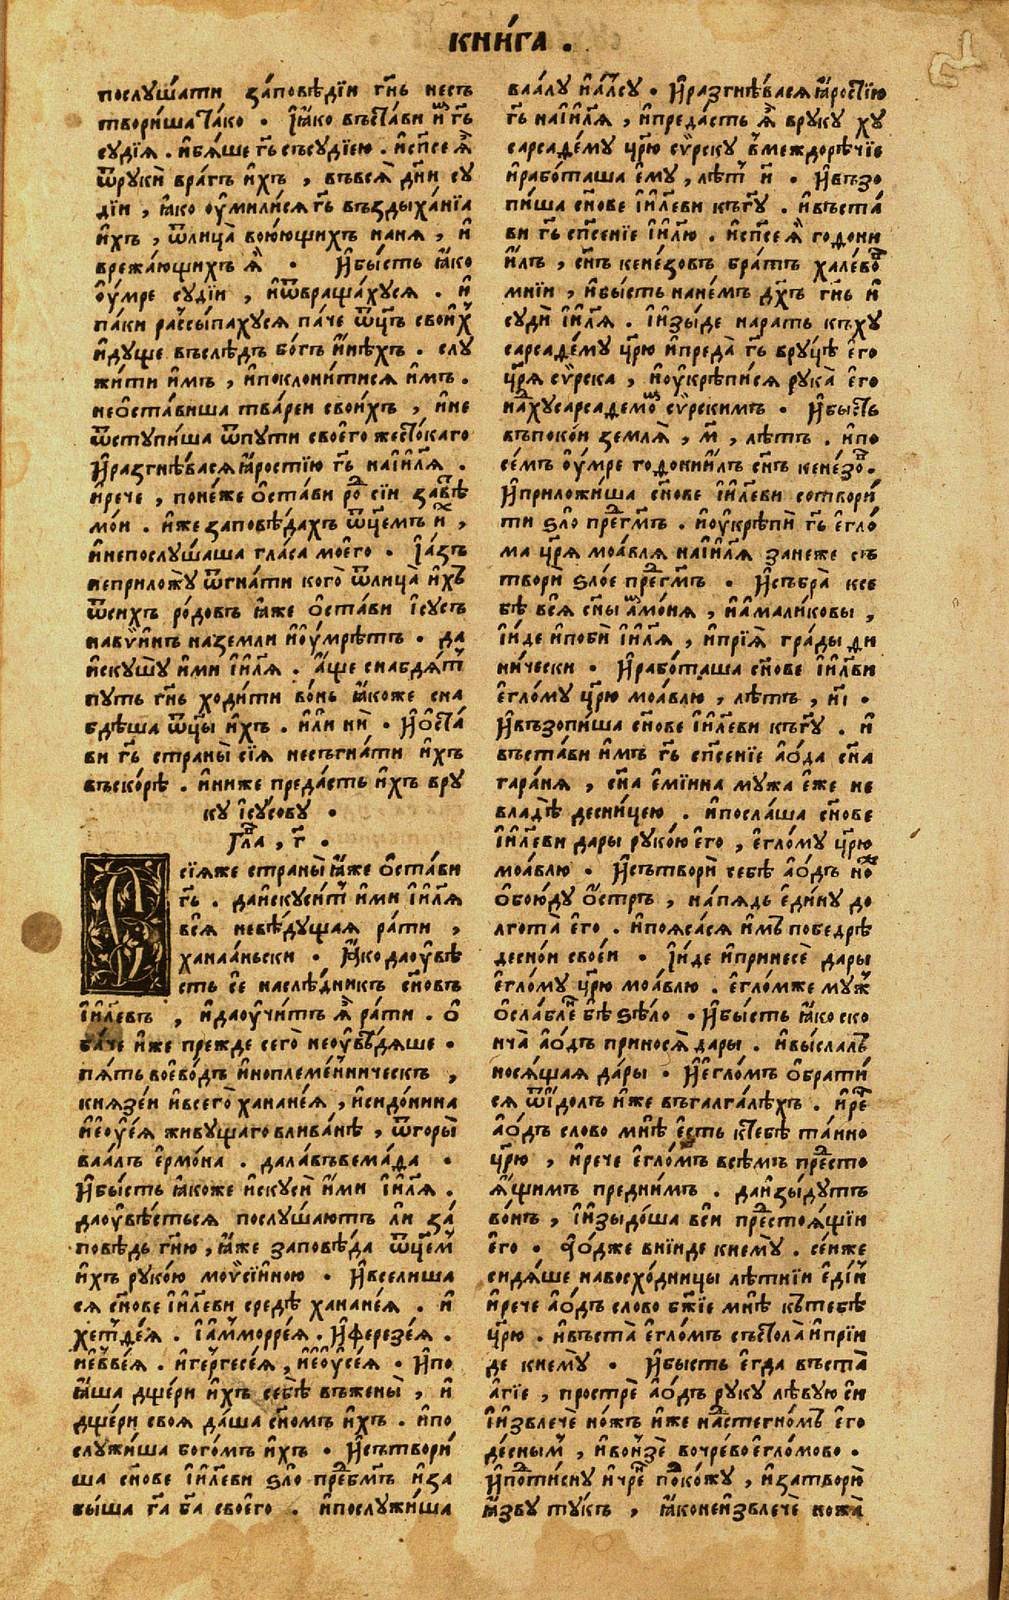 кни́га .
послꙋ́шати за́повѣдїи гн҃ь несъ
твори́ша та́ко . ꙗ҆́ко въста́ви и҆̀м гъ҃
сꙋдїѧ̀ . и҆бѧ́ше гъ҃ съсꙋдїею . и҆сп҃се ѧ҆̀
ѿрꙋкѝ вра́гъ и҆́хъ , въвсѧ̀ дн҃и сꙋ
дїи , ꙗ҆́ко оу҆мили́сѧ гъ҃ въздыха́нїа
и҆́хъ , ѿлица̀ вою́ющихъ нанѧ̀ , и҆
врежа́ющихъ ѧ҆̀ . И҆бы́сть ꙗ҆́ко
оу҆́мре сꙋдїи , и҆ѿвраща́хꙋсѧ . и҆
па́ки рассы́пахꙋсѧ па́че ѿц҃ъ свои́х
и҆дꙋще въслѣ́дъ бо́гъ и҆нѣ́хъ . слꙋ
жи́ти и҆́мъ , и҆поклони́тисѧ и҆́мъ .
неѻ҆ста́виша тва́реи свои́хъ , и҆не
ѿстꙋпи́ша ѿпꙋти свое҆го жесто́каго
И҆разгнѣ́васѧ ꙗ҆́ростїю гъ҃ наі҆и҃лѧ .
и҆рече , поне́же ѻ҆ста́ви ро́д сїи завѣ́
мо́и . и҆́же заповѣ́дахъ ѿц҃емъ и҆́х ,
и҆непослꙋ́шаша гла́са мое҆го . І҆а́зъ
неприложꙋ̀ ѿгна́ти кого̀ ѿлица̀ и҆́хъ
ѿсихъ ро́довъ ꙗ҆́же ѻ҆ста́ви і҆сꙋсъ
навѵ́инъ наземли и҆оу҆́мрѣтъ . да
и҆скꙋшꙋ̀ и҆́ми і҆и҃лѧ . а҆́ще снабдѧ́т
пꙋть гн҃ь ходи́ти во́нь ꙗ҆́коже сна
бдѣ́ша ѿц҃ы и҆́хъ . и҆лѝ нѝ . И҆ѻ҆ста́
ви гъ҃ страны̀ сїѧ̀ несъгна́ти и҆́хъ
въско́рѣ . и҆ниже преда́сть и҆́хъ врꙋ
кꙋ і҆сꙋ́совꙋ .
Гла , г҃ .
Сїѧже страны̀ ꙗ҆́же ѻ҆ста́ви
гъ҃ . даи҆скꙋси́т и҆́ми і҆и҃лѧ
всѧ̀ невѣ́дꙋщаѧ ра́ти ,
ханаа́ньски . Ꙗ҆́ко даоу҆вѣ́
сть се҆ наслѣ́дникъ сн҃овъ
і҆и҃левъ , и҆даоу҆чи́тъ ѧ҆̀ ра́ти . ѻ҆
ба́че и҆́же прежде сего̀ неоу҆вѣ́дѧше .
пѧ́ть вое҆во́дъ и҆ноплеме́нническъ ,
кнѧзе́и и҆всего̀ хана́нѐѧ , и҆сидо́нина
и҆е҆ѵ́еѧ живꙋщаго вливанѣ , ѿгоры̀
ваа́лъ е҆рмо́на . дала́въвема́да .
И҆бы́сть ꙗ҆́коже и҆скꙋсѝ и҆́ми і҆и҃лѧ .
даоу҆вѣ́стьсѧ послꙋ́шаютъ ли за́
повѣдь гн҃ю , ꙗ҆́же заповѣ́да ѿц҃ем
и҆́хъ рꙋко́ю моѵ̈сїи́ною . И҆вселиша
сѧ сн҃ове і҆и҃леви средѣ̀ хана́неѧ . и҆
хет́деѧ . І҆аммо́рреѧ . И҆ферезе́ѧ .
и҆е҆ѵве́ѧ . и҆герге́сеѧ , и҆е҆ѵсе́ѧ . И҆по
ꙗ҆́ша дще́ри и҆́хъ себѣ̀ въжены̀ , и҆
дще́ри своѧ да́ша сн҃омъ и҆́хъ . и҆по
слꙋжи́ша бого́мъ и҆́хъ . И҆сътвори́
ша сн҃ове і҆и҃леви ѕло̀ пред бг҃мъ и҆за
бы́ша га҃ ба҃ свое҆го . и҆послꙋжи́ша
ваа́лꙋ и҆а҆́лсꙋ . И҆разгнѣ́васѧ ꙗ҆́ростїю
гъ҃ наі҆и҃лѧ , и҆преда́сть ѧ҆̀ врꙋкꙋ хꙋ
сарсаде́мꙋ цр҃ю сѵ́рскꙋ в междорѣ́чїе
и҆рабо́таша е҆мꙋ , лѣ́т и҃ . И҆възо
пи́ша сн҃ове і҆и҃леви къгꙋ҃ . и҆въста́
ви гъ҃ сп҃сенїе і҆и҃лю . и҆сп҃се ѧ҆̀ годони
и҆́лъ , сн҃ъ кене́зовъ бра́тъ хале́вов
мнїи , и҆бы́сть нане́мъ дх҃ъ гн҃ь и҆
сꙋдѝ і҆и҃лѧ . і҆изы́де нарать къхꙋ
сарсаде́мꙋ цр҃ю и҆преда̀ гъ҃ врꙋцѣ̀ е҆го
цр҃ѧ сѵ́рска , и҆оу҆крѣпи́сѧ рꙋка̀ е҆го
над хꙋсарсаде́мом сѵ́рскимъ . И҆бы́сть
въпоко́и землѧ̀ , м҃ , лѣ́тъ . и҆по
се́мъ оу҆́мре годониилъ сн҃ъ кене́зов .
И҆приложи́ша сн҃ове і҆и҃леви сотвори́
ти ѕло̀ пред гм҃ъ . и҆оу҆крѣпѝ гъ҃ е҆гло́
ма цр҃ѧ моа́влѧ наі҆и҃лѧ занеже съ
творѝ ѕло́е пред гм҃ъ . И҆събра̀ ксе
бѣ̀ всѧ̀ сн҃ы а҆ммо́нѧ , и҆а҆мали́ковы ,
і҆и́де и҆побѝ і҆и҃лѧ , и҆прїѧ̀ гра́ды ди
ни́чески . И҆рабо́таша сн҃ове і҆и҃лви
е҆гло́мꙋ цр҃ю моа́влю , лѣ́тъ , и҃і .
И҆възопи́ша сн҃ове і҆и҃леви къгꙋ҃ . и҆
въста́ви и҆́мъ гъ҃ сп҃сенїе а҆ѻ́да сн҃а
гара́нѧ , сн҃а е҆мїи́нна мꙋ́жа е҆́же не
владѣ̀ десни́цею . и҆посла́ша сн҃ове
і҆и҃леви дары рꙋко́ю е҆го , е҆гло́мꙋ цр҃ю
моа́влю . И҆сътворѝ себѣ̀ а҆ѻ́дъ но́ж
ѻ҆бою́дꙋ ѻ҆́стръ , на́пѧдь е҆ди́нꙋ до
лгота̀ е҆го . и҆поѧса́сѧ и҆́мъ победрѣ̀
десно́и свое́и . І҆и́де и҆принесѐ дары
е҆гло́мꙋ цр҃ю моа́влю . е҆гло́мже мꙋж
ѻ҆слабле́н бѣ̀ ѕѣло . И҆бы́сть ꙗ҆́ко ско
нча̀ а҆ѻ́дъ приносѧ̀ да́ры . и҆высла́лъ
носѧ́щаѧ да́ры . И҆е҆гло́мъ ѻ҆брати́
сѧ ѿи́долъ и҆́же въгалга́лѣхъ . и҆ре҃
а҆ѻ́дъ сло́во мнѣ̀ е҆́сть ктебѣ̀ та́нно
цр҃ю , и҆рече е҆гло́мъ всѣ́мъ пред сто
ѧ҆́щимъ пред ни́мъ . даи҆зы́дꙋтъ
во́нъ , і҆изыдо́ша вси пред стоѧ́щїи
е҆го . А҆ѻ́дже вни́иде кнемꙋ̀ . се́иже
сидѧ́ше навосхо́дницы лѣ́тнїи е҆ди́н
и҆рече а҆ѻ́дъ сло́во бж҃їе мнѣ̀ къ тебѣ̀
цр҃ю . и҆въста̀ е҆гло́мъ състо́ла и҆прїи
де кнемꙋ̀ . И҆бысть е҆гда въста̀
а҆́гїе , прострѐ а҆ѻ́дъ рꙋкꙋ лѣ́вꙋю си
і҆извлечѐ но́жъ и҆́же над стегно́мъ е҆го
де́сным , и҆вонзѐ вочре́во е҆гло́мово .
И҆под тиснꙋ и҆чре́н покожꙋ , и҆затворѝ
ꙗ҆́звꙋ тꙋ́къ , ꙗ҆́конеи҆звлечѐ ножа̀